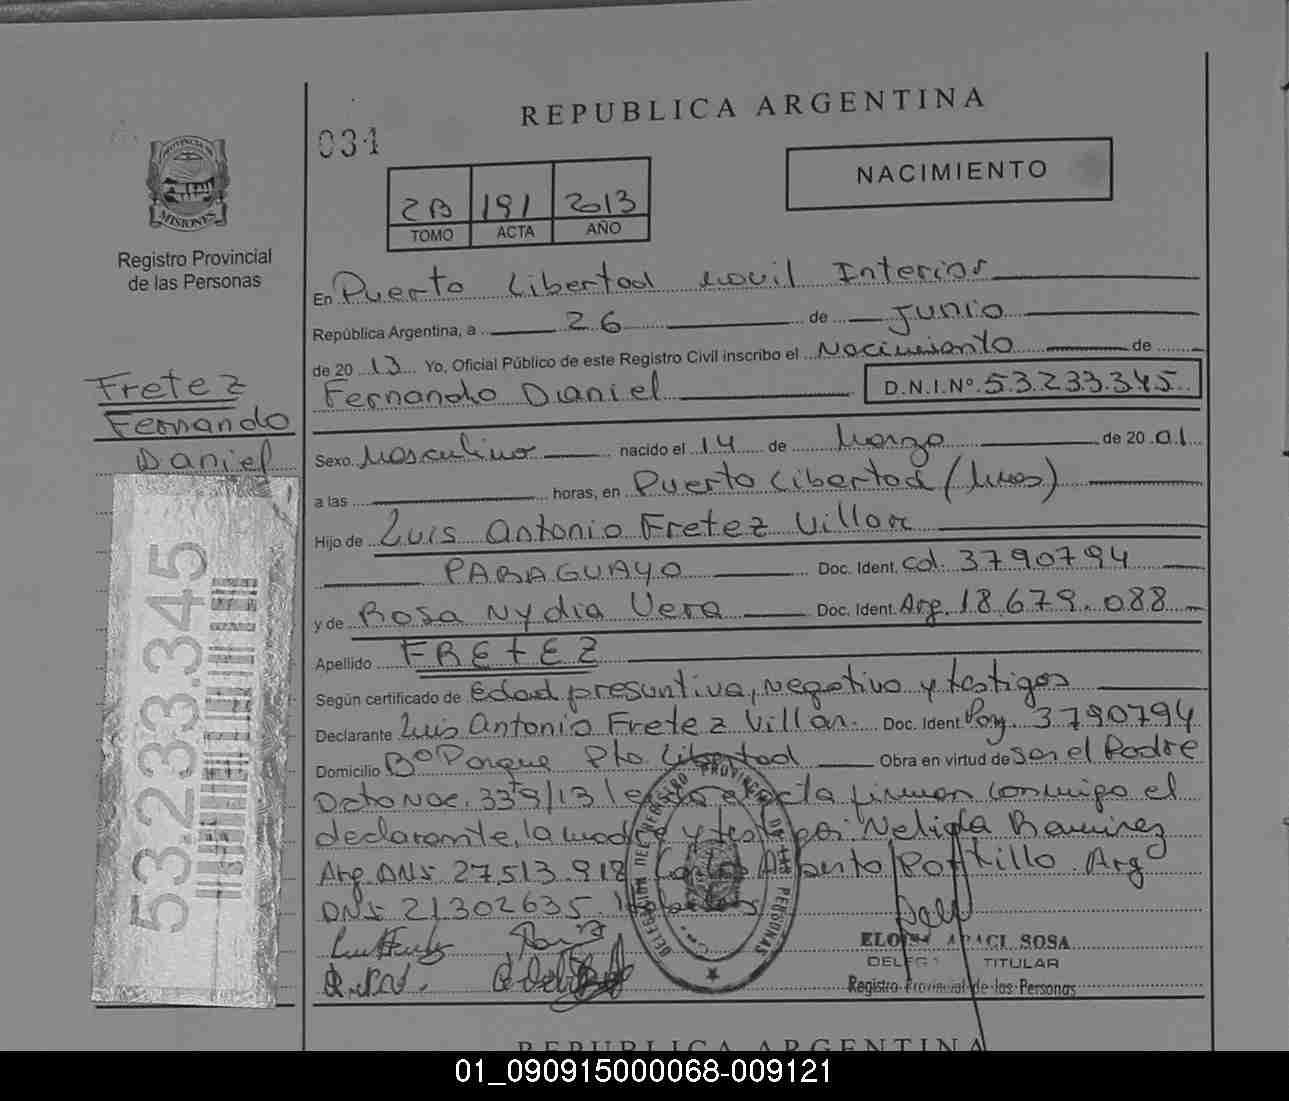 REPUBLICA ARGENTINA
031
NACIMIENTO
PROVINCIA DE MISIONES
Registro Provincial
de las Personas
2B 191 2013
TOMO ACTA AÑO
En Puerto Libertad movil Interior
República Argentina, a 26 de Junio
de 20 13 Yo, Oficial Público de este Registro Civil inscribo el Nacimiento de
Fernando Daniel D.N.I.Nº 53.233.345
Fretez
Fernando
Daniel
Sexo Masculino nacido el 14 de Marzo de 20 01
a las horas, en Puerto Libertad (Mnes)
Hijo de Luis Antonio Fretez Villar
PARAGUAYO Doc. Ident. Cd. 3790794
y de Rosa Nydia Vera Doc. Ident. Arg. 18.679.088
Apellido FRETEZ
Según certificado de Edad presuntiva, negativo y testigos
Declarante Luis Antonio Fretez Villar. Doc. Ident. Pary. 3790794
Domicilio Bº Parque Pto Libertad Obra en virtud de Ser el Padre
Dcto Nac. 339/13 leida el acta firman conmigo el
declarante, la madre y testigos: Nelida Ramirez
Arg. DNI 27.513.918 Alberto Portillo Arg
DNI 21302635.
53.233.345
DELEGACION DEL REGISTRO PROVINCIAL DE LAS PERSONAS
ELOISA ARACI SOSA
DELEGADA TITULAR
Registro Provincial de las Personas
REPUBLICA ARGENTINA
01_090915000068-009121